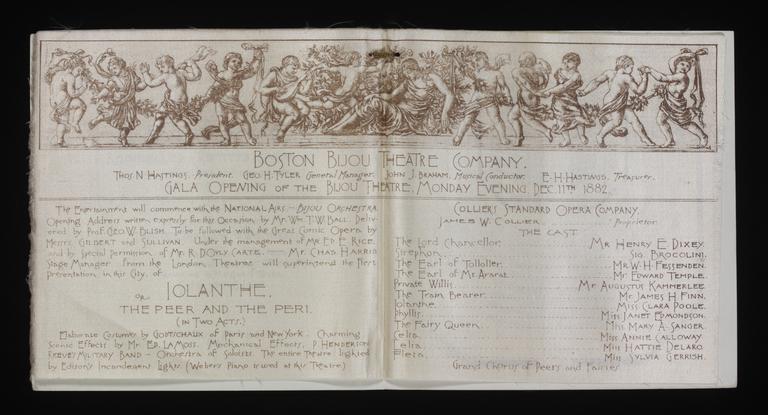 BOSTON BIJOU THEATRE COMPANY.
THOS. N. HASTINGS, President. GEO. H. TYLER General Manager. JOHN J. BRAHAM, Musical Conductor. E. H. HASTINGS, Treasurer.
GALA OPENING OF THE BIJOU THEATRE, MONDAY EVENING, DEC. 11TH 1882.
The Entertainment will commence with the NATIONAL AIRS – BIJOU ORCHESTRA
Opening Address written expressly for this Occasion by Mr. Wm. T. W. BALL. Deliv-
ered by Prof. GEO. W. BLISH. To be followed with the Great Comic Opera by
Messrs. GILBERT and SULLIVAN. Under the management of MR. ED. E. RICE,
and by Special Permission of MR. R. D'OYLY CARTE. — MR. CHAS. HARRIS
Stage Manager from the London Theatres will superintend the First
Presentation in this City, of
OR, IOLANTHE.
THE PEER AND THE PERI.
(IN TWO ACTS.)
Elaborate Costumes by GODTSCHAUX of Paris and New York. Charming
Scenic Effects by Mr. ED. LAMOSS. Mechanical Effects, P. HENDERSON
REEVES MILITARY BAND – Orchestra of Soloists. The entire Theatre lighted
by Edison's Incandescent Lights. (Weber's Piano is used at this Theatre.)
COLLIER'S STANDARD OPERA COMPANY.
JAMES W. COLLIER Proprietor.
THE CAST
The Lord Chancellor. MR HENRY E. DIXEY.
Strephon. SIG. BROCOLINI.
The Earl of Tolloller. MR. W. H. FESSENDEN.
The Earl of Mt. Ararat. MR EDWARD TEMPLE.
Private Willis. MR AUGUSTUS KAMMERLEE.
The Train Bearer. MR. JAMES H. FINN.
Iolanthe. MISS CLARA POOLE.
Phyllis. MISS JANET EDMONDSON.
The Fairy Queen. MISS MARY A. SANGER.
Celia. MISS ANNIE CALLOWAY.
Leila. MISS HATTIE DELARO.
Fleta. MISS SYLVIA GERRISH.
Grand Chorus of Peers and Fairies